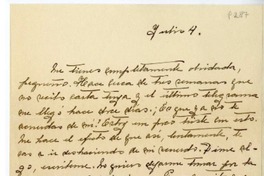 Julio 4.
Me tienes completamente olvidada,
pequeño. Hace cerca de tres semanas que
no recibo carta tuya y el último telegrama
me llegó hace doce días; ¿Es que ya no te
acuerdas de mí? Estoy un poco triste con esto.
Me hace el efecto de que así, lentamente, te
vas a ir deshaciendo de mi recuerdo. Dime al-
go, escríbeme. No quiero dejarme tomar por la